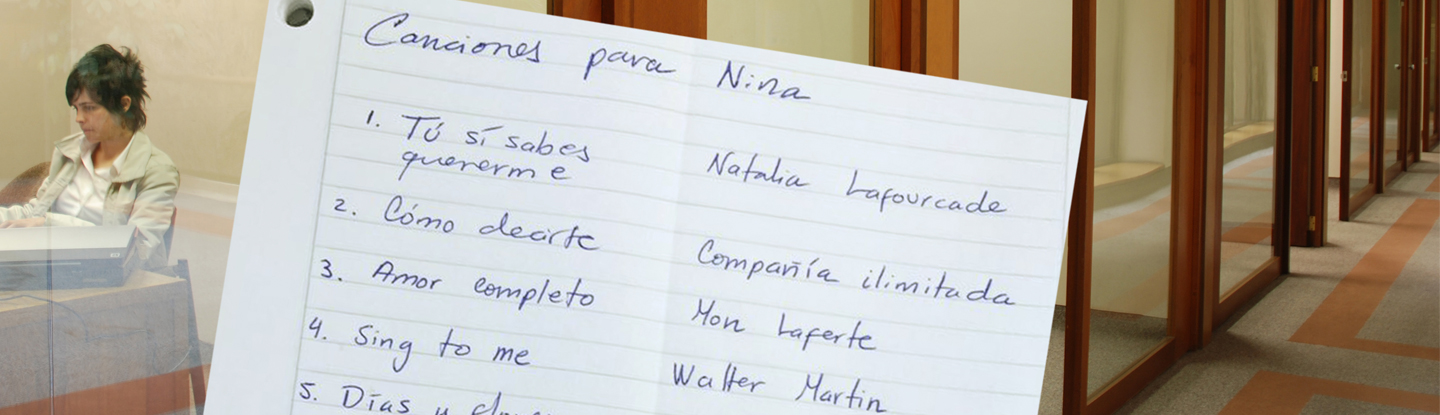 Canciones para Nina
1. Tú sí sabes
quererme
Natalia Lafourcade
2. Cómo decirte
Compañía ilimitada
3. Amor completo
Mon Laferte
4. Sing to me
Walter Martin
5. Días y